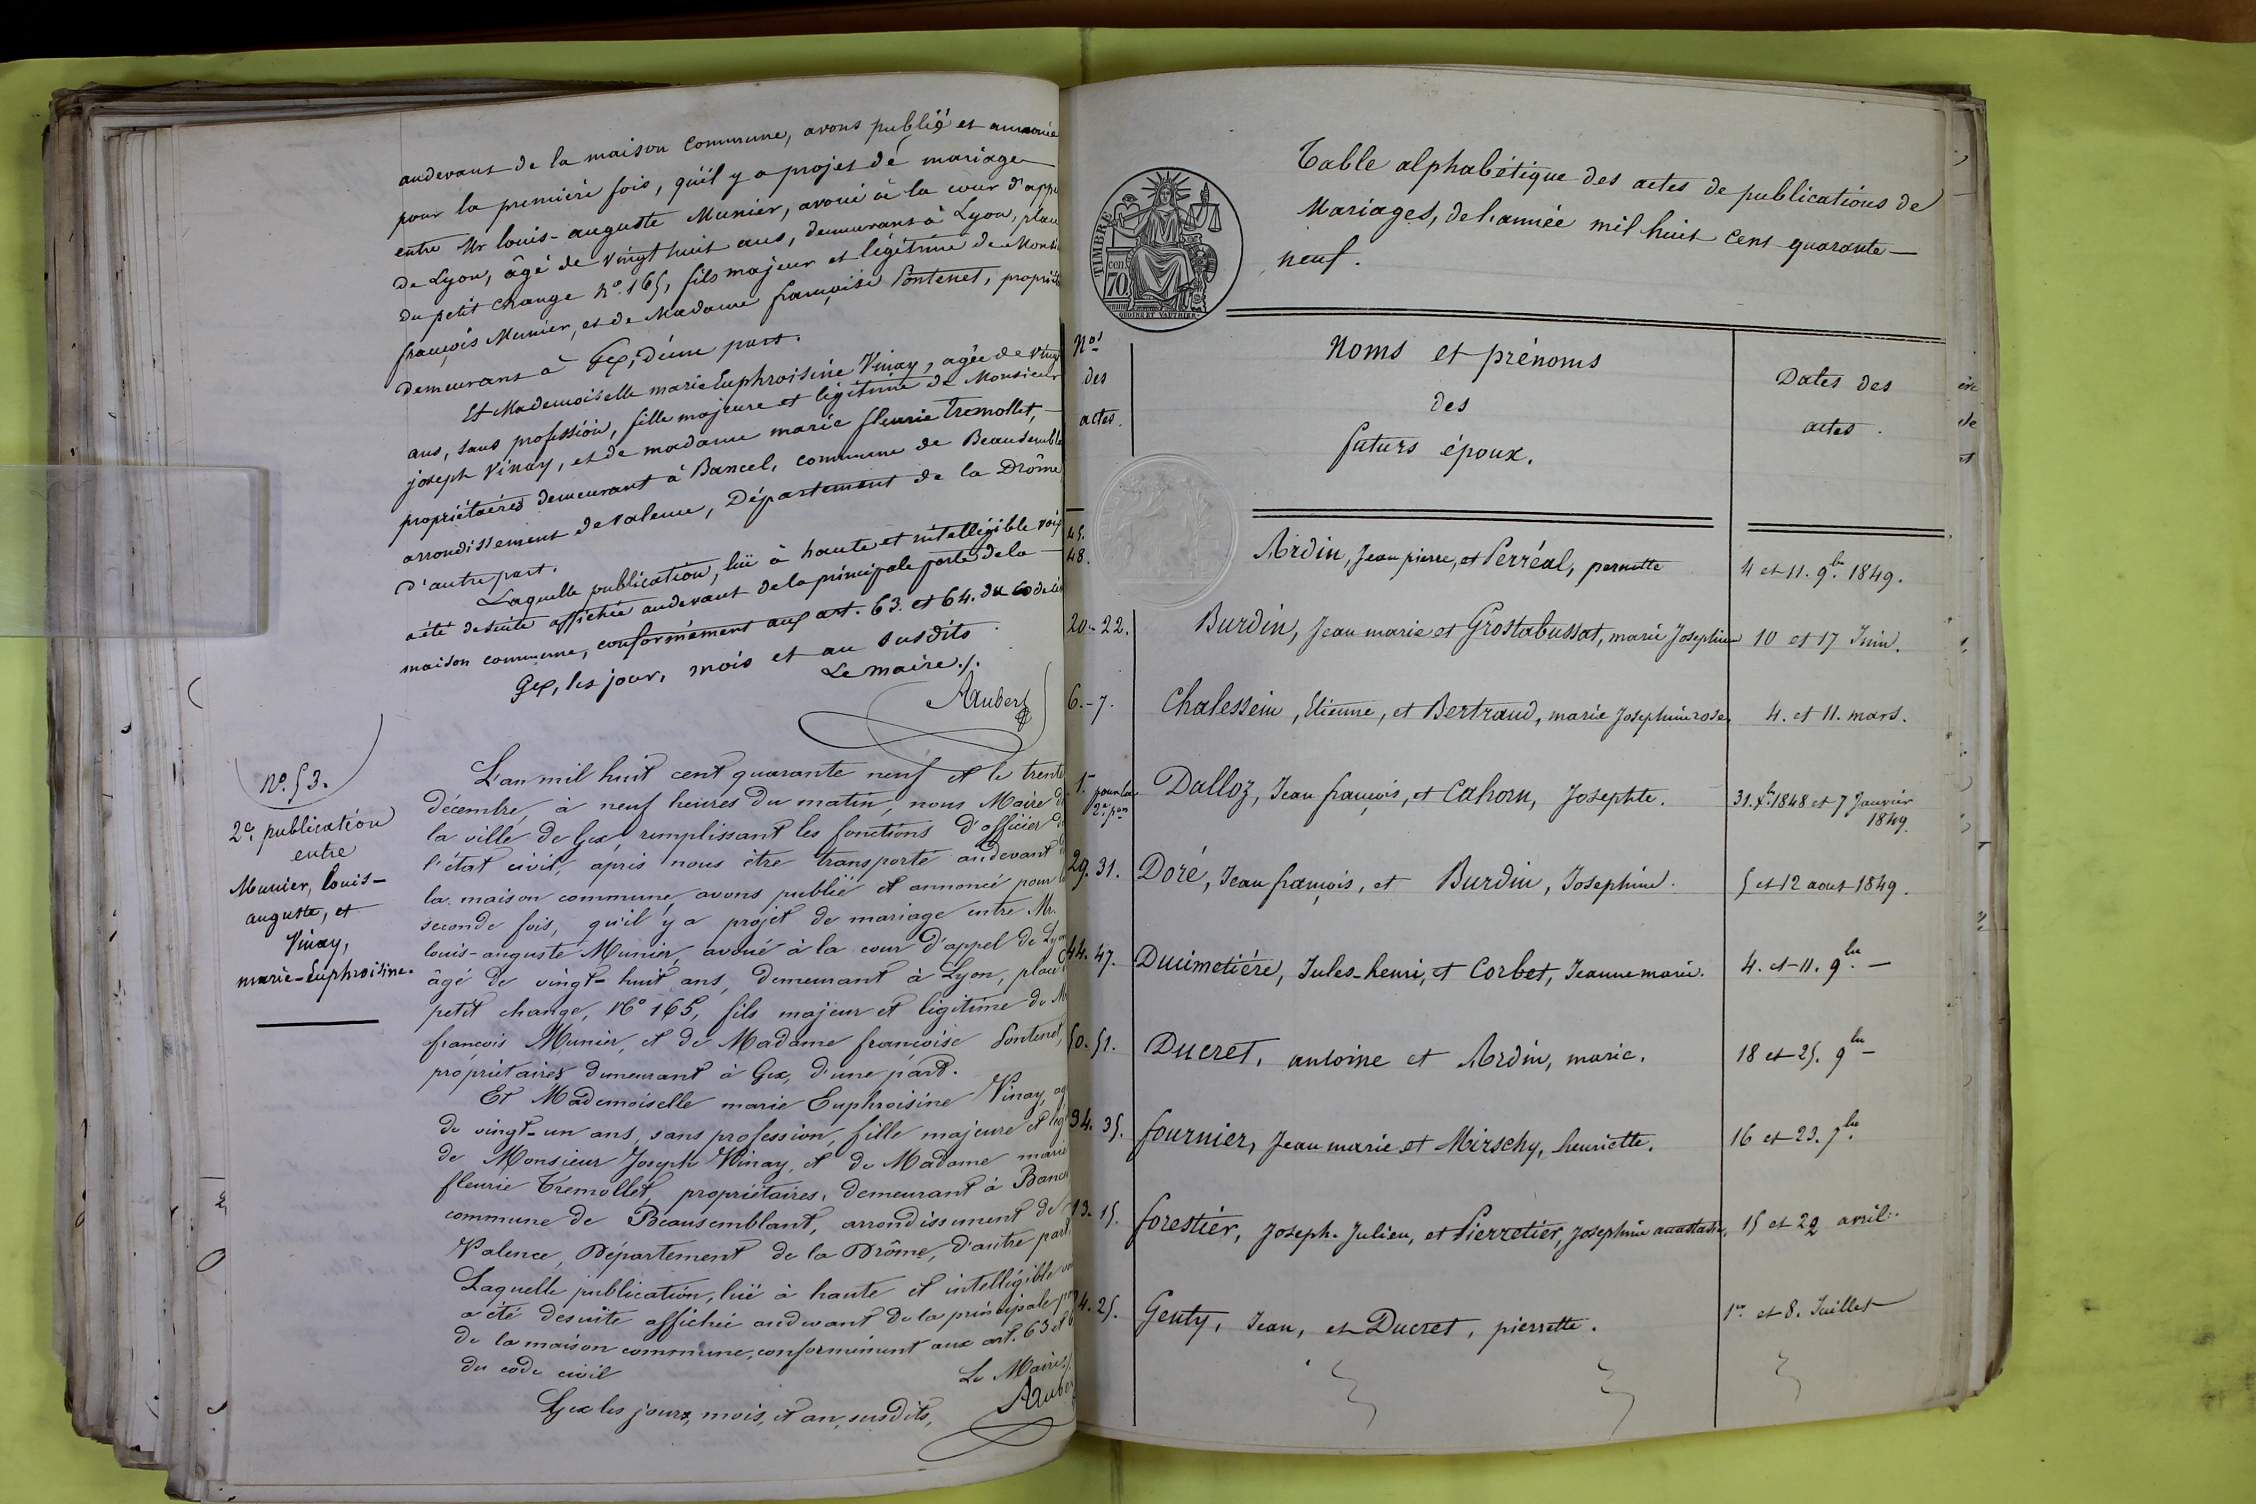 audevant de la maison commune, avons publié et annoncé
pour la première fois, qu'il y a projet de mariage
entre Mr louis-auguste Munier, avoué à la cour d'app
de Lyon, âgé de vingt huit ans, demeurant à Lyon, place
du petit change No. 165, fils majeur et légitime de Monsi
françois Munier, et de Madame françoise Pontenet, propriét
demeurant à Gex, d'une part.
Et Mademoiselle marie Euphroisine Vinay, agée de vingt
ans, sans profession, fille majeure et légitime de Monsieur
joseph Vinay, et de madame marie fleurie Tremollet,
propriétaires demeurant à Bancel, commune de Beausembla
arrondissement de valence, Département de la Drôme
d'autre part.
Laquelle publication, lüe à haute et intelligible voix
a été desuite affichée audevant de la principale porte de la
maison commune, conformément aux art. 63. et 64. du code civ
Gex, les jour, mois et an susdits
Le Maire./.
Aubert
No. 53.
2e. publication
entre
Munier, louis-
auguste, et
Vinay,
marie-Euphroisine.
L'an mil huit cent quarante neuf et le trente
décembre, à neuf heures du matin, nous Maire de
la ville de Gex remplissant les fonctions d'officier de
l'état civil, après nous être transporté audevant d
la maison commune, avons publié et annoncé pour la
seconde fois, qu'il y a projet de mariage entre Mr.
louis-auguste Munier, avoué à la cour d'appel de Lyon
âgé de vingt-huit ans, demeurant à Lyon, place d
petit change, No 165, fils majeur et légitime de M
françois Munier, et de Madame françoise Pontenet,
propriétaires demeurant à Gex, d'une part.
Et Mademoiselle marie Euphroisine Vinay, ag
de vingt-un ans, sans profession, fille majeure et légi
de Monsieur Joseph Vinay, et de Madame marie
fleurie Tremollet, propriétaires, demeurant à Bancel
commune de Beausemblant, arrondissement de
Valence, Département de la Drôme, d'autre part.
Laquelle publication, lüe à haute et intelligible voi
a été desuite affichée audevant de la principale por
de la maison commune, conformément aux art. 63 et 6
du code civil
Le Maire./.
Gex les jours, mois, et an, susdits,
Auber
TIMBRE
cen
70
Table alphabétique des actes de publications de
Mariages, de l'année mil huit cent quarante-
neuf.
Nos des actes.
Noms et prénoms des futurs époux.
Dates des actes.
45. 48. Ardin, Jean pierre, et Perréal, pernette 4 et 11. 9bre 1849.
20.-22. Burdin, Jean marie et Grostabussat, marie Josephine 10 et 17 Juin.
6.-7. Chalessein, Etienne, et Bertrand, marie Josephine rose 4. et 11. mars.
1. pour la 2e. pon Dalloz, Jean françois, et Cahorn, Josephte. 31. Xbre 1848 et 7 Janvier 1849.
29. 31. Doré, Jean françois, et Burdin, Josephine. 5 et 12 aout 1849.
44. 47. Ducimetiére, Jules-henri, et Corbet, Jeanne marie. 4. et 11. 9bre. —
50. 51. Ducret, antoine et Ardin, marie. 18 et 25. 9bre —
34. 35. fournier, Jean marie et Mirschy, henriette. 16 et 23. 7bre.
13. 15. forestier, Joseph-Julien, et Pierretier, Josephine anastasie, 15 et 22 avril.
4. 25. Genty, Jean, et Ducret, pierrette. 1er et 8. Juillet